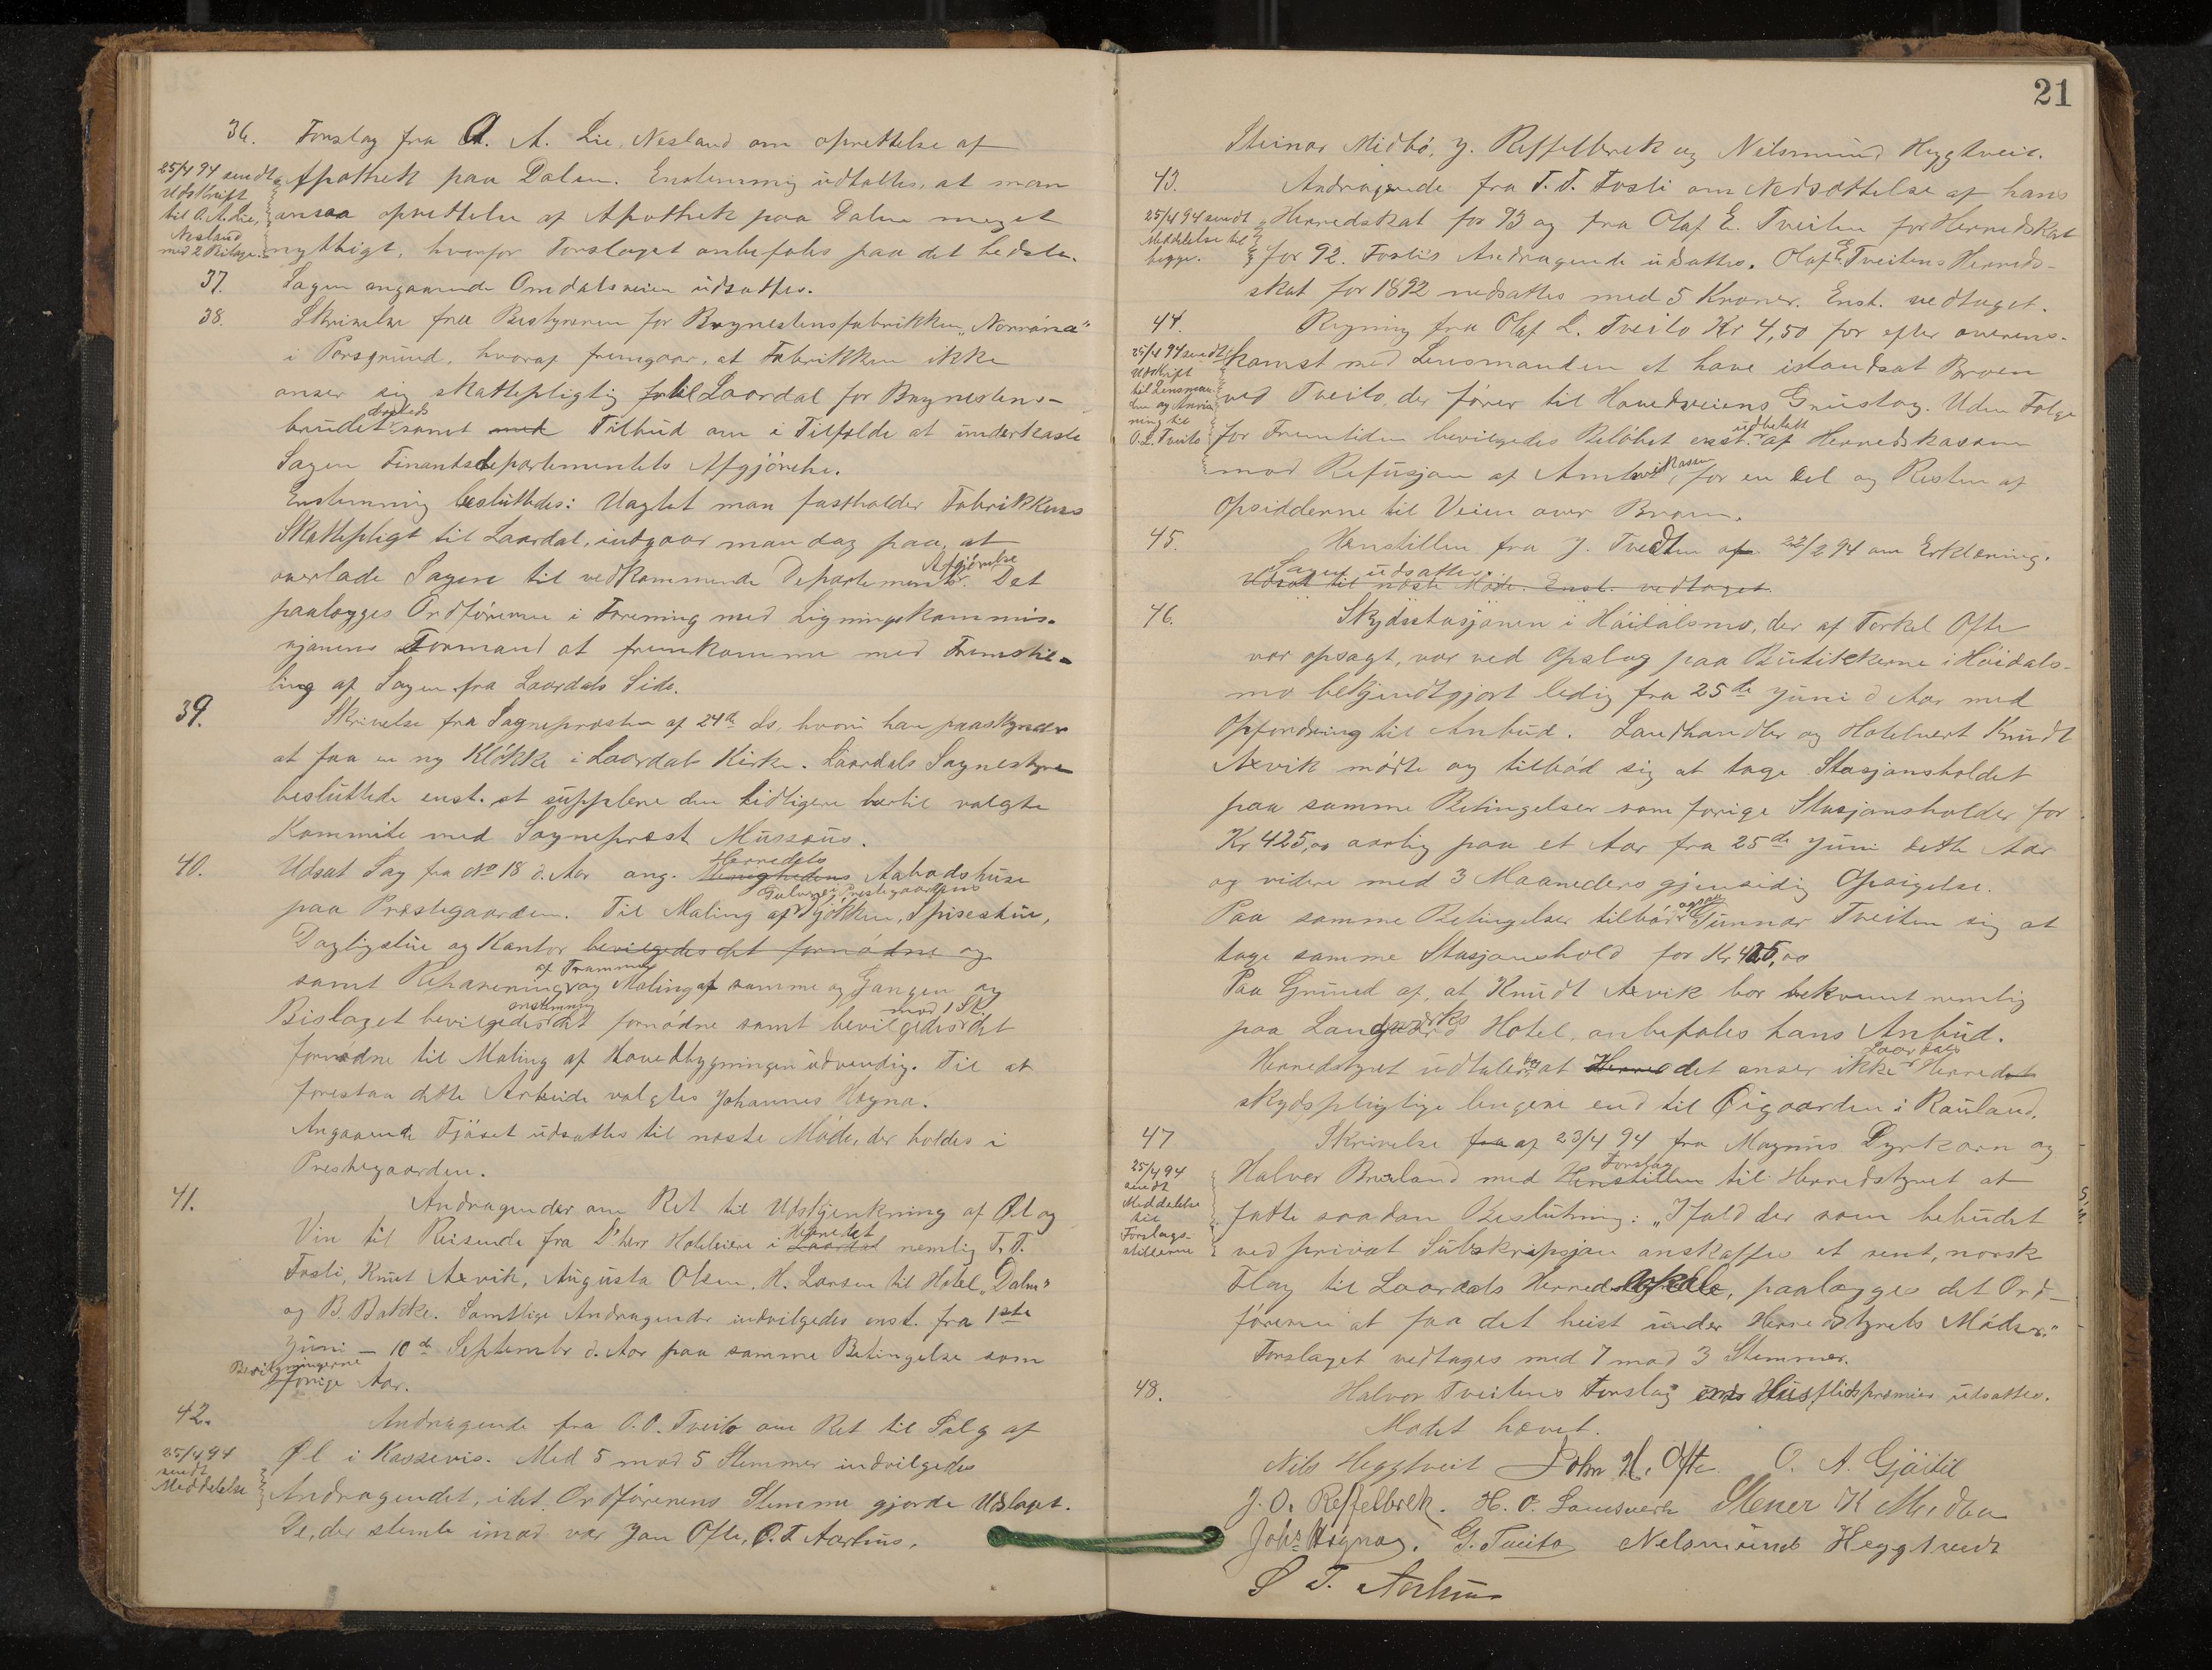 36. Forslag fra A. A. Lie, Nesland om oprettelse af
25/4 94 sendt Apothek paa Dalen. Enstemmig udtaltes, at man
Udskrift
til A. A. Lie, ansaa oprettelse af Apothek paa Dalen meget
Nesland
med 2 Bilage. nyttigt, hvorfor Forslaget anbefales paa det bedste.
37. Sagen angaaende Omdalsveien udsattes.
38. Skrivelse fra Bestyreren for Brynestensfabrikken "Norröna"
i Porsgrund, hvoraf fremgaar, at Fabrikken ikke
anser sig skattepligtig til Laardal for Brynestens-
brudet samt med Tilbud om i Tilfælde at underkaste
Sagen Finantsdepartementets Afgjörelse.
Enstemmig besluttedes: Uagtet man fastholder Fabrikkens
Skattepligt til Laardal, indgaar man dog paa, at
Afgjörelse
overlade Sagen til vedkommende Departements. Det
paalægges Ordföreren i Forening med Ligningskommis-
sjonens Formand at fremkomme med Fremstil-
ling af Sagen fra Laardals Side.
39. Skrivelse fra Sognepresten af 24de ds, hvori han paaskynder
at faa en ny Klökke i Laardals Kirke. Laardals Sognestyre
besluttede enst. at supplere den tidligere hertil valgte
Kommite med Sogneprest Mussæus.
Herredets
40. Udsat Sag fra No 18 d. Aar ang. Menighedens Aabodshuse
Gulvene i Prestegaardens
paa Prestegaarden. Til Maling af Kjökken, Spisestue,
Dagligstue og Kontor bevilgedes det fornödne og
af Trammen
samt Reparering og Maling af samme og Gangen og
enstemmig mod 1 St.
Bislaget bevilgedes det fornödne samt bevilgedes det
fornödne til Maling af Hovedbygningen udvendig. Til at
forestaa dette Arbeide valgtes Johannes Högna.
Angaaende Fjöset udsattes til næste Möde, der holdes i
Prestegaarden.
41. Andragender om Ret til Udskjenkning af Öl og
Herredet
Vin til Reisende fra D'herr Hoteleiere i Laardal nemlig T. T.
Fosli, Knut Axvik, Augusta Olsen, H. Larsen til Hotel "Dalen"
og B. Bakke. Samtlige Andragender indvilgedes enst. fra 1ste
Juni - 10de September d. Aar paa samme Betingelse som
Bevilgningerne
forrige Aar.
42. Andragende fra O. O. Tveito om Ret til Salg af
25/4 94 Öl i Kassevis. Med 5 mod 5 Stemmer indvilgedes
sendt
Meddelelse Andragendet, idet Ordförerens Stemme gjorde Udslaget.
De, der stemte imod var Jon Ofte, O. T. Aarhus,
21
Steinar Midbö, J. Reffelbrek og Nelsmund Heggtveit.
43. Andragende fra T. T. Fosli om Nedsættelse af hans
25/4 94 sendt Herredskat for 93 og fra Olaf E. Tveiten for Herredskat
Meddelelse til
begge. for 92. Fosli's Andragende udsattes. Olaf E. Tveitens Herred-
skat for 1892 nedsattes med 5 Kroner. Enst. vedtaget.
44. Regning fra Olaf L. Tveito Kr 4,50 for efter overens-
25/4 94 sendt komst med Lensmanden at have istandsat Broen
Udskrift
til Lensman-
den og Anvis- ved Tveito, der förer til Hovedveiens Grustag. Uden Fölge
ning til udbetalt
O. L. Tveito for Fremtiden bevilgedes Belöbet enst. af Herredskassen
mod Refusjon af Amtsveikassen for en Del og Resten af
Opsidderne til Veien over Broen.
45. Henstillen fra J. Tvedten af 22/2 94 om Erklæring.
Sagen udsattes.
Udsat til næste Möde. Enst. vedtaget.
46. Skydsstasjonen i Höidalsmo, der af Torkel Ofte
var opsagt, var ved Opslag paa Butikkerne i Höidals-
mo bekjendtgjort ledig fra 25de Juni d Aar med
Opfordring til Anbud. Landhandler og Hotelvert Knudt
Axvik mödte og tilböd sig at tage Stasjonsholdet
paa samme Betingelser som forige Stasjonsholder for
Kr 425,00 aarlig paa et Aar fra 25de Juni dette Aar
og videre med 3 Maaneders gjensidig Opsigelse.
ogsaa
Paa samme Betingelser tilböd Gunnar Tveiten sig at
tage samme Stasjonshold for Kr 425,00
Paa Grund af, at Knudt Axvik bor bekvemt nemlig
paa Hotel, anbefales hans Anbud.
Laardals
Herredstyret udtaler, at Herredet det anser ikke Herredet
skydspligtige lengere end til Öigaarden i Rauland.
47 Skrivelse fra af 23/4 94 fra Magnus Dyrkorn og
25/4 94 Forslag
sendt Halvor Bruland med Henstillen til Herredstyret at
Meddelelse
til fatte saadan Beslutning: "Ifald der som bebudet
Forslags-
stillerne ved privat Subskripsjon anskaffes et rent, norsk
Flag til Laardals Herredslokale, paalægges det Ord-
föreren at faa det heist under Herredstyrets Möder."
Forslaget vedtages med 7 mod 3 Stemmer.
48. Halvor Tveitens Forslag om Husflidspremier udsattes.
Mödet hævet.
Nils Heggtveit John H. Ofte O. A. Gjöitil
J. O. Reffelbrek. H. O. Lansverk Stener K Midbö
Johs Högna. G. Tveito Nelsmund Heggtveit
O T. Aarhus